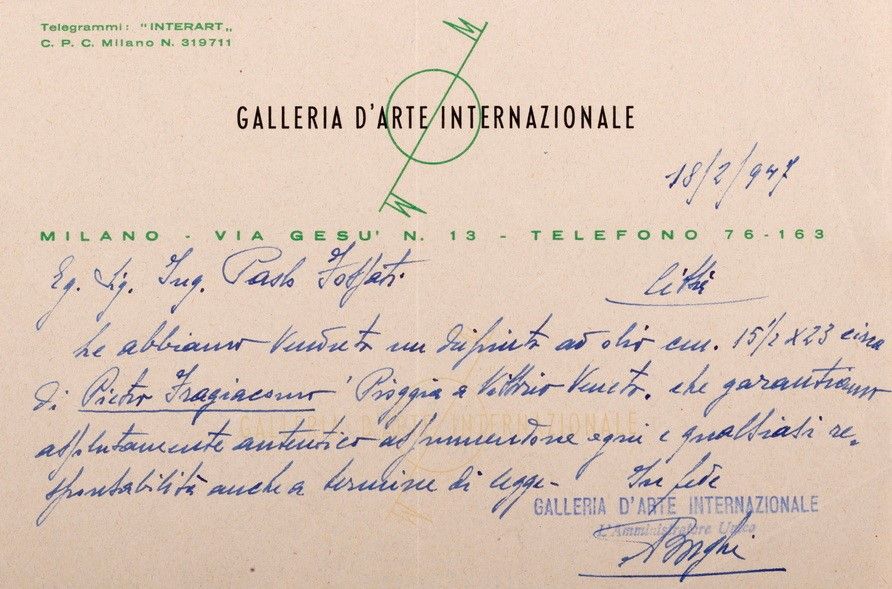 Telegrammi: "INTERART„
C. P. C. Milano N. 319711
M
GALLERIA D'ARTE INTERNAZIONALE
W
18/2/947
MILANO - VIA GESU' N. 13 - TELEFONO 76-163
Eg. Sig. Ing. Paolo Fossati
Città
Le abbiamo venduto un dipinto ad olio cm. 15½ x 23 circa
di Pietro Fragiacomo "Pioggia a Vittorio Veneto", che garantiamo
assolutamente autentico assumendone ogni e qualsiasi re-
sponsabilità anche a termine di legge-
In fede
GALLERIA D'ARTE INTERNAZIONALE
L'Amministratore Unico
Borghi